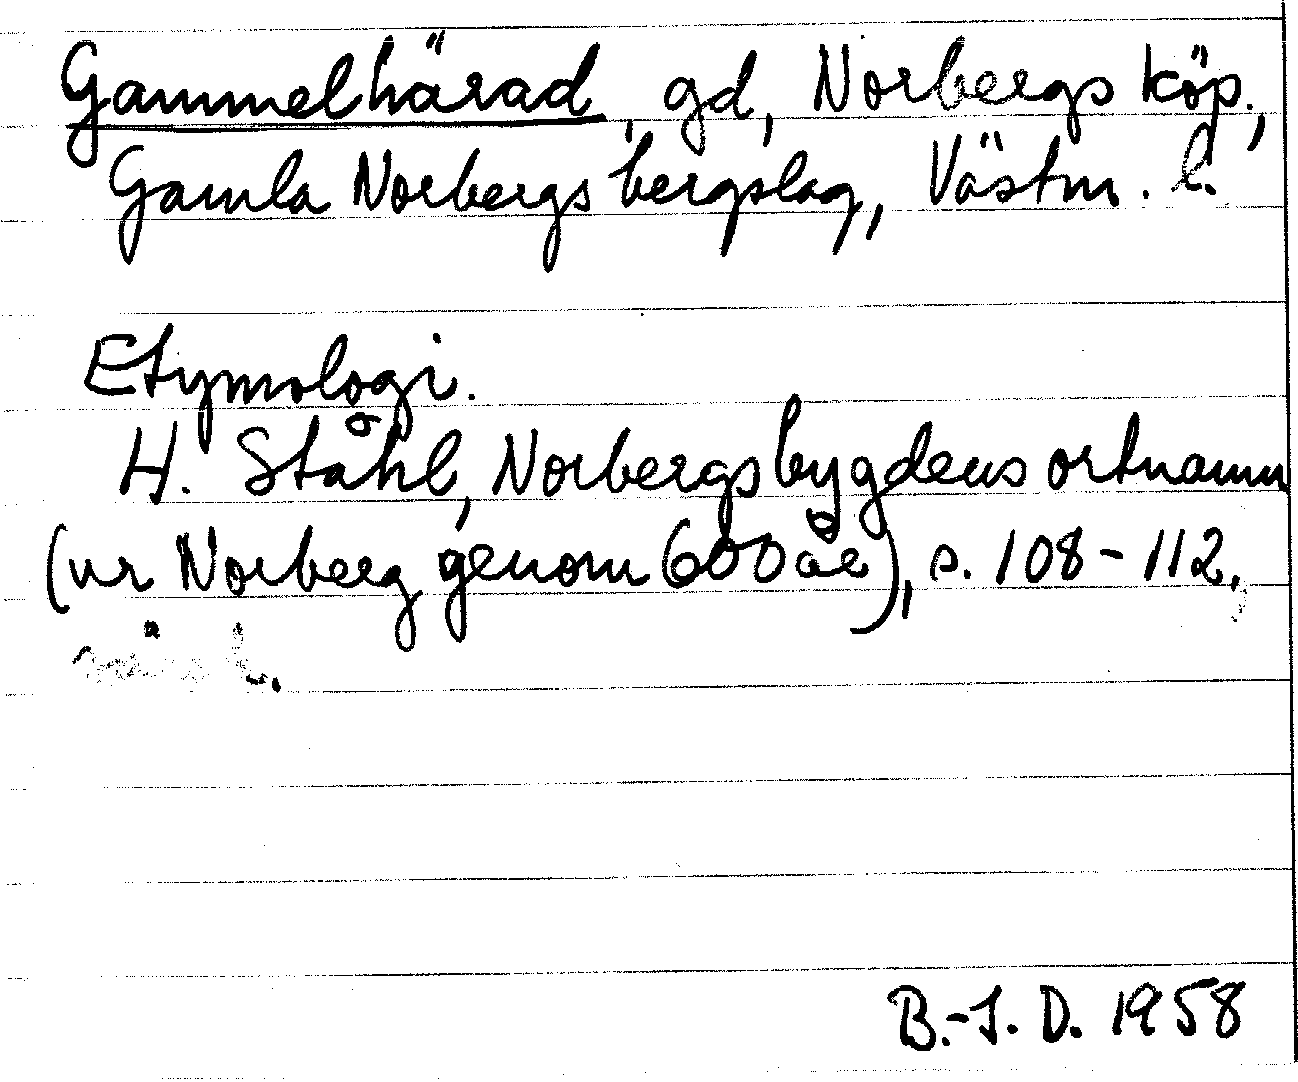 Gammelhärad, gd, Norbergs köp.,
Gamla Norbergs bergslag, Västm. l.
Etymologi.
H. Ståhl, Norbergsbygdens ortnamn
(ur Norberg genom 600 år), s. 108-112,
B.-I. D. 1958